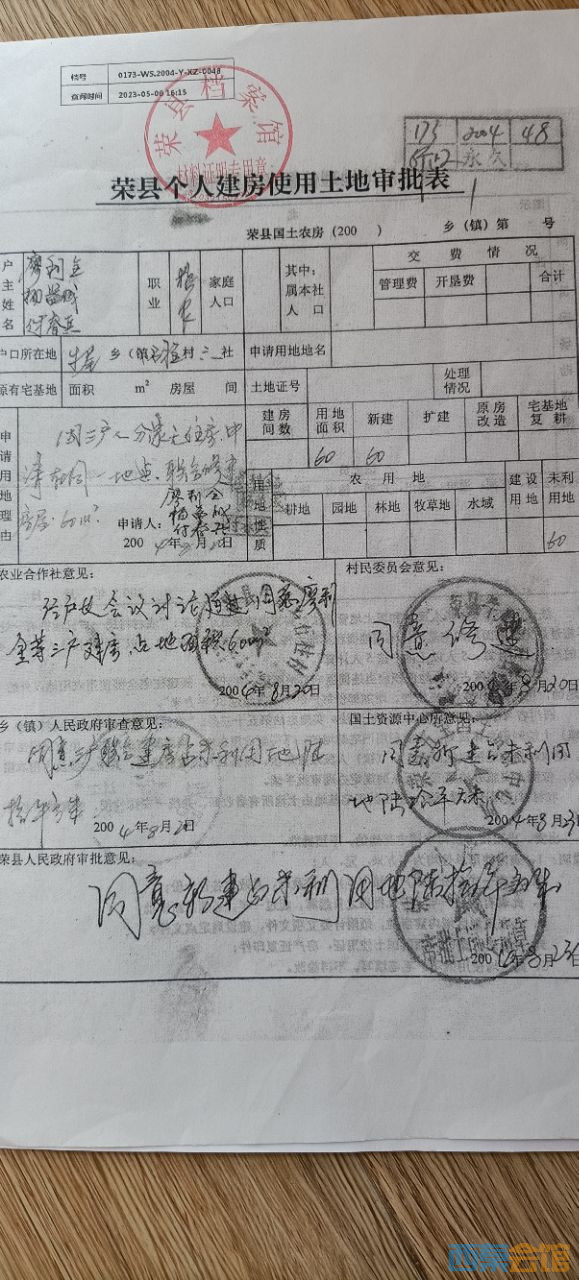 档号 0173-WS.2004-Y-XZ-0048
查阅时间 2023-05-09 16:15
荣县档案馆
材料证明专用章
2004 48
永久
荣县个人建房使用土地审批表
荣县国土农房(200 ) 乡(镇)第 号
户主姓名 廖利全
职业 务农 家庭人口 其中:属本社人口 交费情况
管理费 开垦费 合计
户口所在地 乡(镇) 村 三社 申请用地地名
原有宅基地 面积 m² 房屋 间 土地证号 处理情况
申请用地理由
建房间数 用地面积 新建 扩建 原房改造 宅基地复耕
60 60
因三户人分家无住房,申
请在同一地点,联合修建
房屋60m²
申请人: 廖利全
2004年8月20日
用地地类性质 农用地 建设用地 未利用地
耕地 园地 林地 牧草地 水域
60
农业合作社意见: 村民委员会意见:
经户长会议讨论通过,同意廖利
全等三户建房,占地面积60m²
2004年8月20日
同意修建
2004年8月20日
乡(镇)人民政府审查意见: 国土资源中心所意见:
同意三户联合建房占未利用地陆
拾平方米
2004年8月2日
同意新建占未利用
地陆拾平方米
2004年8月23日
荣县人民政府审批意见:
同意新建占未利用地陆拾平方米
2004年8月23日
西祠会馆